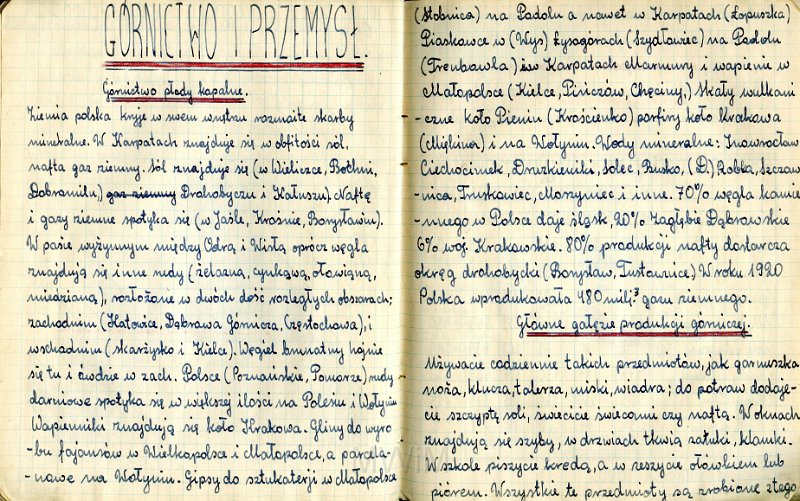 GÓRNICTWO I PRZEMYSŁ.
Górnictwo płody kopalne.
Ziemia polska kryje w swem wnętrzu rozmaite skarby
mineralne. W Karpatach znajduje się w obfitości sól,
nafta gaz ziemny. Sól znajduje się (w Wieliczce, Bochni,
Dobromilu) gaz ziemny Drohobyczu i Kałuszu). Naftę
i gazy ziemne spotyka się (w Jaśle, Krośnie, Borysławiu).
W pasie wyżynnym między Odrą i Wisłą oprócz węgla
znajdują się inne rudy (żelazna, cynkową, ołowianą,
miedziana), rozłożone w dwóch dość rozległych obszarach;
zachodnim (Katowice, Dąbrowa Górnicza, Częstochowa), i
wschodnim (Skarżysko i Kielce). Węgiel brunatny
się tu i ówdzie w zach. Polsce (Poznańskie, Pomorze) rudy
darniowe spotyka się w większej ilości na Polesiu i Wołyniu
Wapienniki znajdują się koło Krakowa. Gliny do wyro-
-bu fajansów w Wielkopolsce i Małopolsce, a porcela-
-nowe na Wołyniu. Gipsy do sztukaterji w Małopolsce
(Słobnica) na Podolu a nawet w Karpatach (Łopuszka)
Piaskowce w (Wyś) Łysogórach (Szydłowiec) na Podolu
(Trembowla) i w Karpatach Marmury i wapienie w
Małopolsce (Kielce, Pińczów, Chęciny,) Skały wulkani
-czne koło Pienin (Krościenko) porfiry koło Krakowa
(Miękinia) i na Wołyniu. Wody mineralne: Inowrocław
Ciechocinek, Druskieniki, Solec, Busko, (D.) Rabka, Szczaw
-nica, Truskawiec, Morszyniec i inne. 70% węgla kamie
-nnego w Polsce daje śląsk, 20% Zagłębie Dąbrowskie
6% woj. Krakowskie. 80% produkcji nafty dostarcza
okręg drohobycki (Borysław, Tustanowice) W roku 1920
Polska wprodukowała 480 milj.³ gazu ziemnego.
Główne gałęzie produkcji górniczej.
Używacie codziennie takich przedmiotów, jak garnuszka
noża, klucza, talerza, miski, wiadra; do potraw dodaje-
cie szczyptę soli, świecicie świecami czy naftą. W oknach
znajdują się szyby, w drzwiach tkwią zasuki, klamki.
W szkole piszycie kredą, a w zeszycie ołówkiem lub
piórem. Wszystkie te przedmioty są zrobione z tego